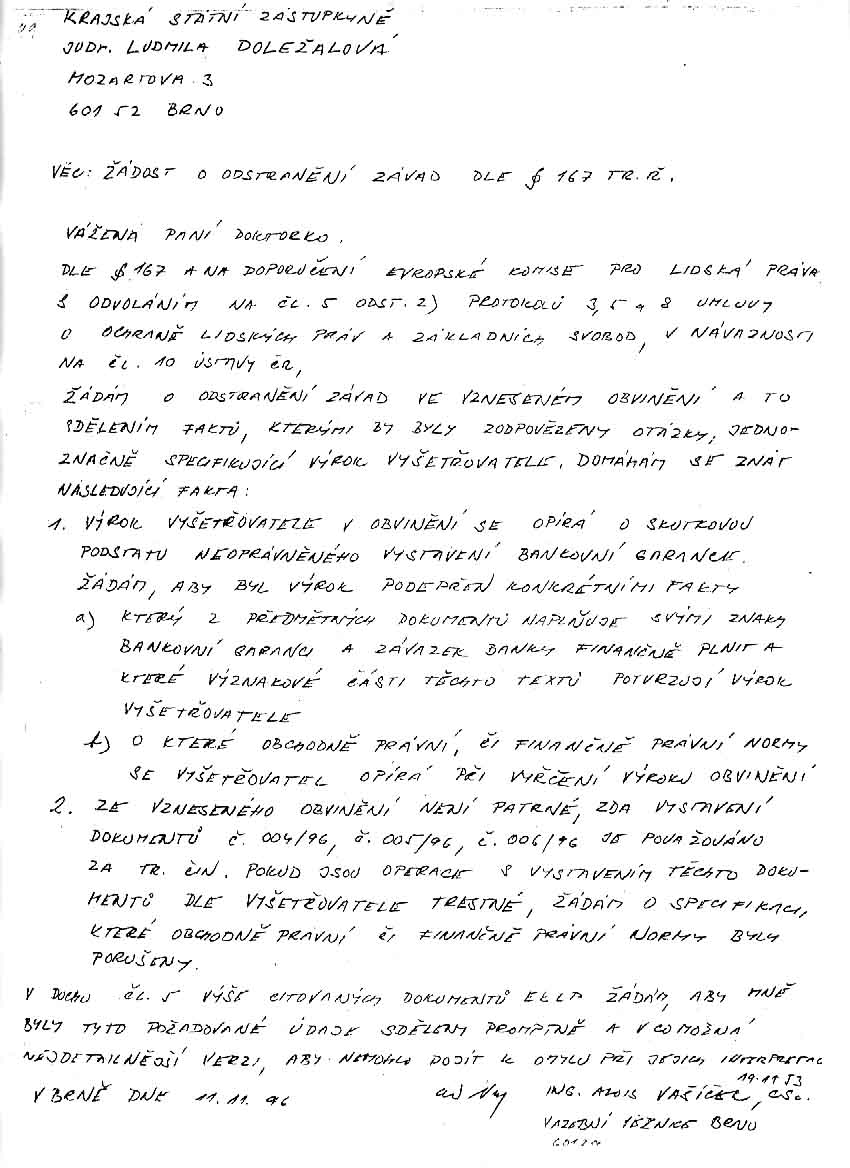 KRAJSKÁ STÁTNÍ ZÁSTUPKYNĚ
JUDr. LUDMILA DOLEŽALOVÁ
MOZARTOVA 3
601 52 BRNO
VĚC: ŽÁDOST O ODSTRANĚNÍ ZÁVAD DLE § 167 TR. Ř.
VÁŽENÁ PANÍ DOKTORKO.
DLE § 167 A NA DOPORUČENÍ EVROPSKÉ KOMISE PRO LIDSKÁ PRÁVA
S ODVOLÁNÍM NA ČL. 5 ODST. 2) PROTOKOLŮ 3, 5 a 8 UMLUVY
O OCHRANĚ LIDSKÝCH PRÁV A ZÁKLADNÍCH SVOBOD, V NÁVAZNOSTI
NA ČL. 10 ÚSTAVY ČR,
ŽÁDÁM O ODSTRANĚNÍ ZÁVAD VE VZNESENÉM OBVINĚNÍ A TO
SDĚLENÍM FAKTŮ, KTERÝMI BY BYLY ZODPOVĚZENY OTÁZKY, JEDNO-
ZNAČNĚ SPECIFIKUJÍCÍ VÝROK VYŠETŘOVATELE. DOMÁHÁM SE ZNÁT
NÁSLEDUJÍCÍ FAKTA:
1. VÝROK VYŠETŘOVATELE V OBVINĚNÍ SE OPÍRÁ O SKUTKOVOU
PODSTATU NEOPRÁVNĚNÉHO VYSTAVENÍ BANKOVNÍ GARANCIE.
ŽÁDÁM, ABY BYL VÝROK PODEPŘEN KONKRÉTNÍMI FAKTY
a) KTERÝ Z PŘEDMĚTNÝCH DOKUMENTŮ NAPLŇUJE SVÝMI ZNAKY
BANKOVNÍ GARANCI A ZÁVAZEK BANKY FINANČNĚ PLNIT A
KTERÉ VÝZNAKOVÉ ČÁSTI TĚCHTO TEXTŮ POTVRZUJÍ VÝROK
VYŠETŘOVATELE
b) O KTERÉ OBCHODNĚ PRÁVNÍ, ČI FINANČNĚ PRÁVNÍ NORMY
SE VYŠETŘOVATEL OPÍRÁ PŘI VYŘČENÍ VÝROKU OBVINĚNÍ
2. ZE VZNESENÉHO OBVINĚNÍ NENÍ PATRNÉ, ZDA VYSTAVENÍ
DOKUMENTŮ Č. 004/96, Č. 005/96, Č. 006/96 JE POVAŽOVÁNO
ZA TR. ČIN. POKUD JSOU OPERACE S VYSTAVENÍM TĚCHTO DOKU-
MENTŮ DLE VYŠETŘOVATELE TRESTNÉ, ŽÁDÁM O SPECIFIKACI,
KTERÉ OBCHODNĚ PRÁVNÍ ČI FINANČNĚ PRÁVNÍ NORMY BYLY
PORUŠENY.
V DUCHU ČL. 5 VÝŠE CITOVANÝCH DOKUMENTŮ ŽÁDÁM, ABY MNĚ
BYLY TYTO POŽADOVANÉ ÚDAJE SDĚLENY PROMPTNĚ A V CO MOŽNÁ
NEJDETAILNĚJŠÍ VERZI, ABY NEMOHLO DOJÍT K OMYLU PŘI JEJICH INTERPRETAC
19.11.53
V BRNĚ DNE 11.11.96 ING. ALOIS VAŠÍČEK, CSc.
VAZEBNÍ VĚZNICE BRNO